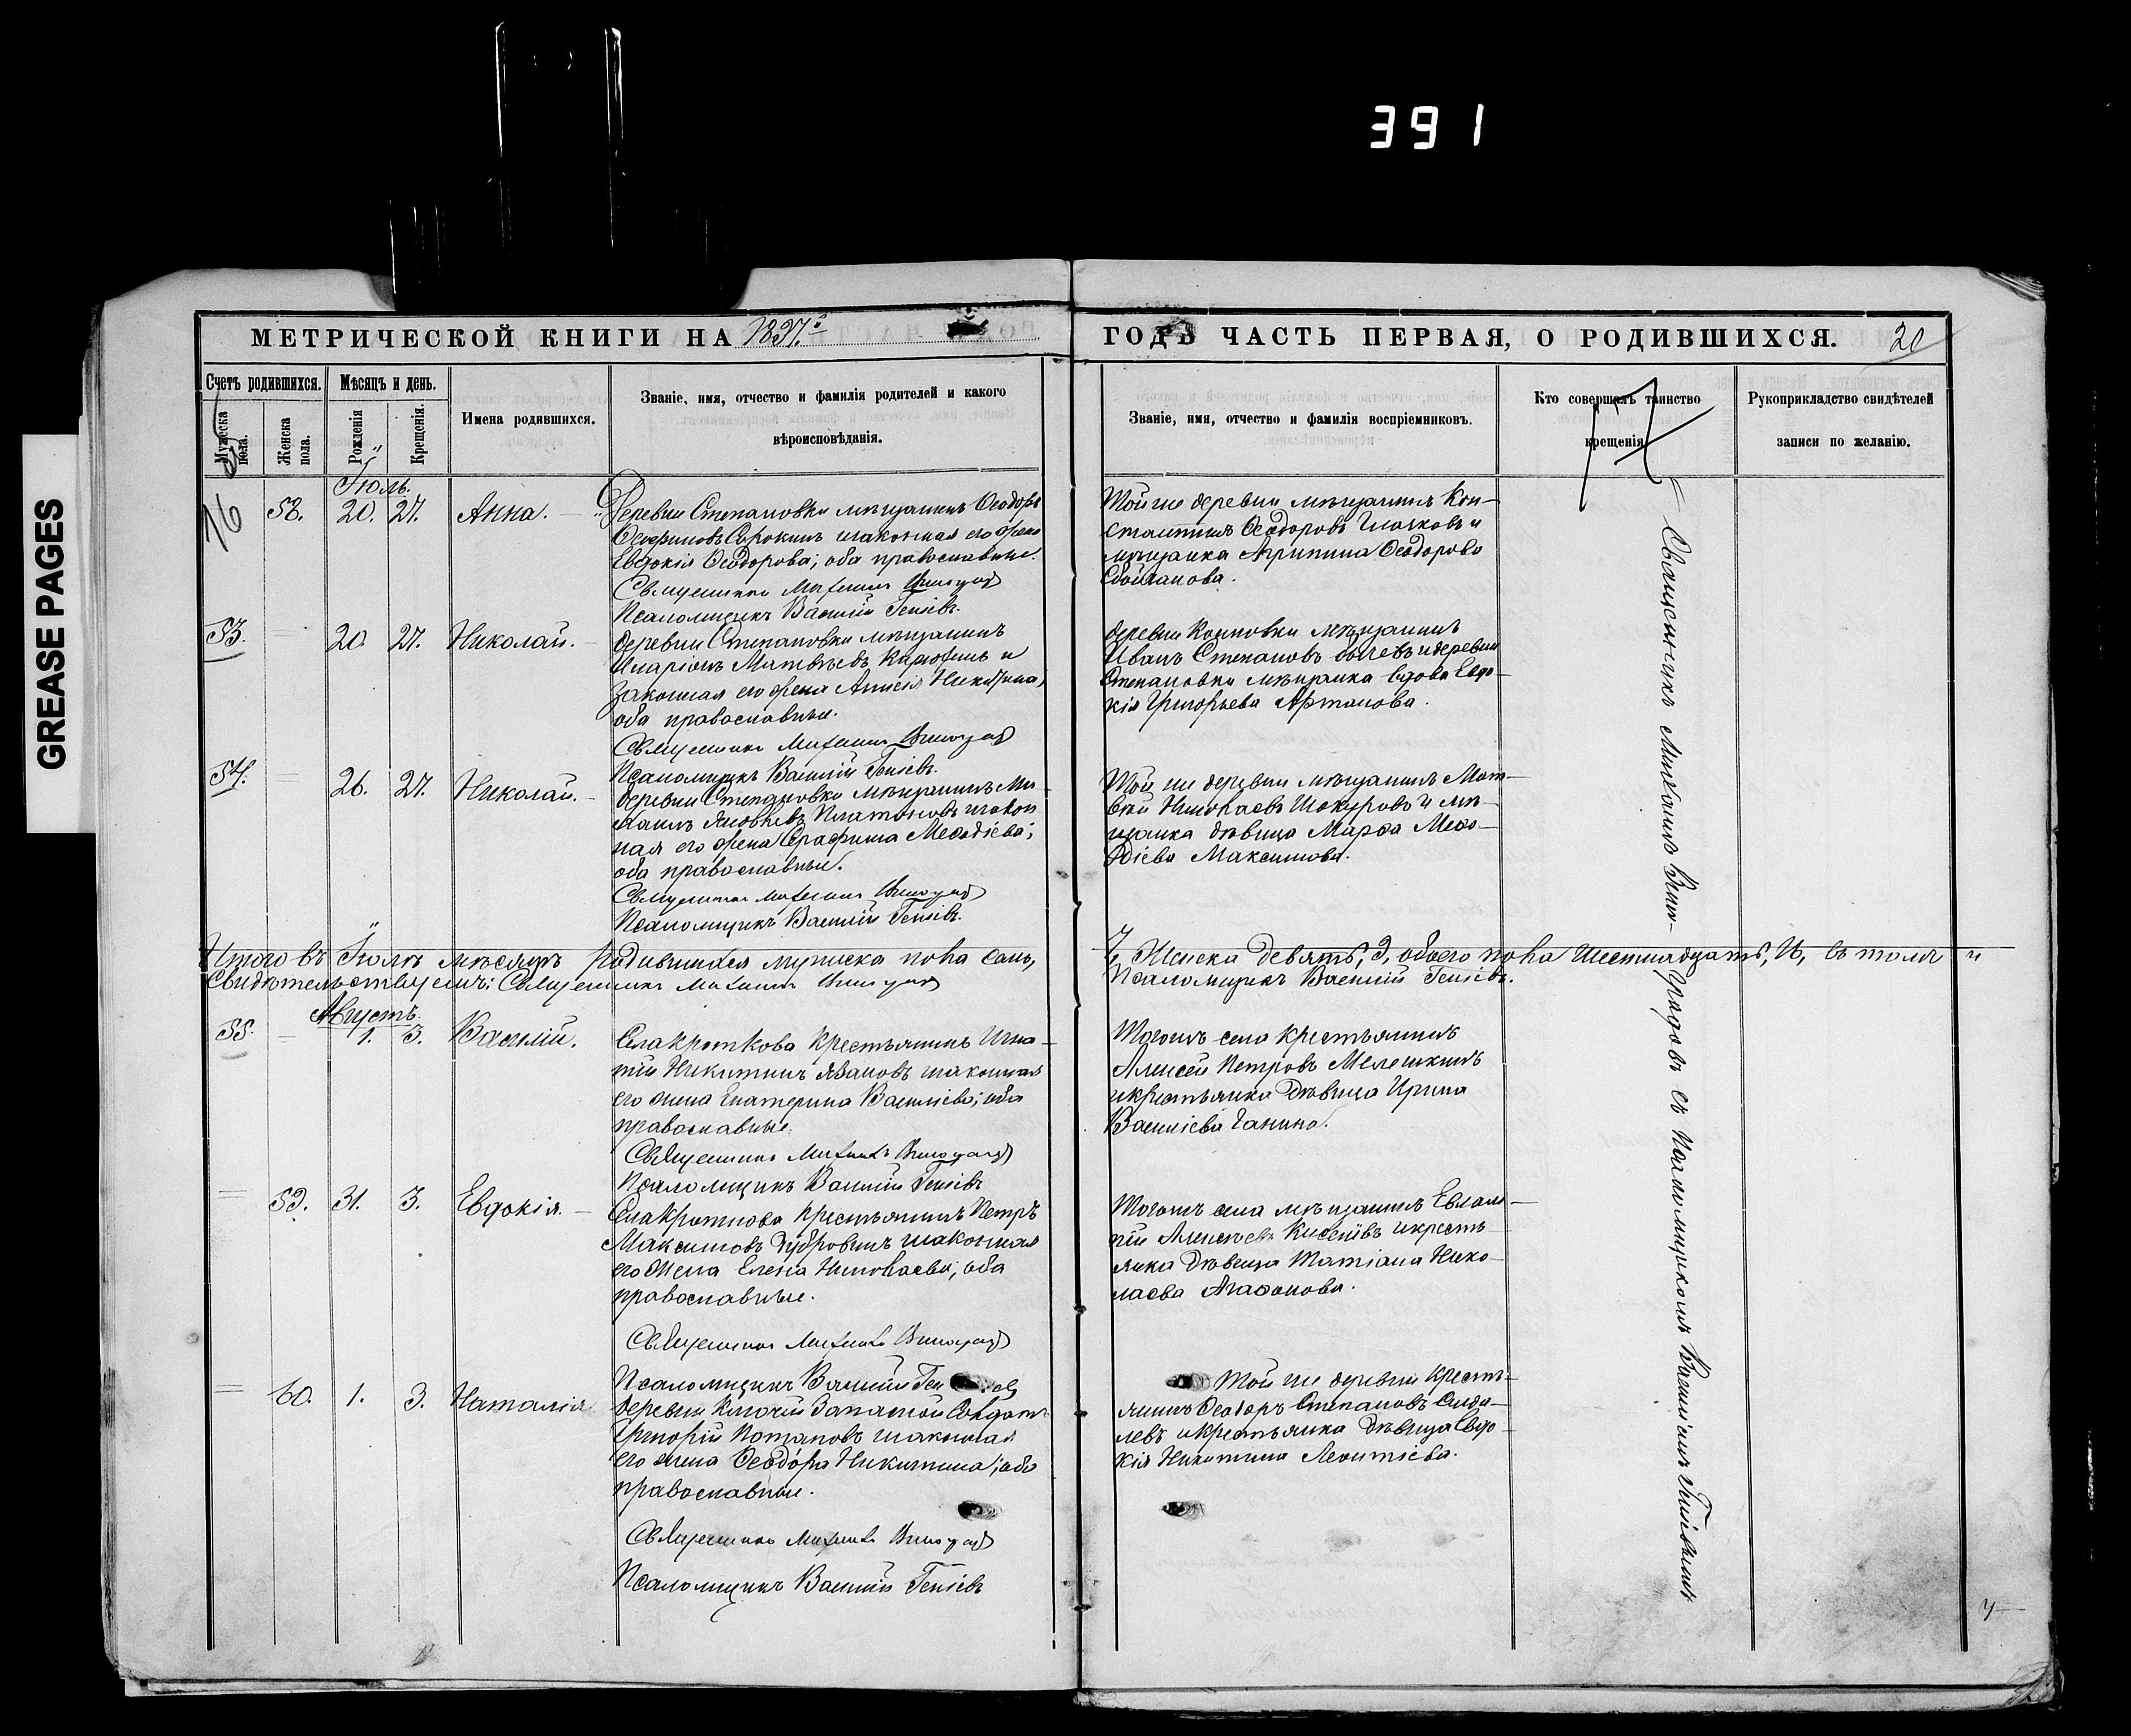 391
GREASE PAGES
МЕТРИЧЕСКОЙ КНИГИ НА 1897.
ГОДЪ ЧАСТЬ ПЕРВАЯ, О РОДИВШИХСЯ. 20
Счетъ родившихся.
Мѣсяцъ и день.
Мужеска пола.
Женска пола.
Рожденія
Крещенія.
Имена родившихся.
Званіе, имя, отчество и фамилія родителей и какого
вѣроисповѣданія.
Званіе, имя, отчество и фамилія воспріемниковъ.
Кто совершилъ таинство
крещенія
Рукоприкладство свидѣтелей
записи по желанію.
16
Іюль.
58. 20. 27. Анна.
Деревни Степановки мѣщанинъ Ѳеодоръ
Сорокинъ и законная его жена
Евдокія Ѳеодорова; оба православные.
Священникъ Михаилъ Виноградовъ
Псаломщикъ Василій Генсіевъ.
Той же деревни мѣщанинъ Кон-
стантинъ Ѳеодоровъ и
мѣщанка Агрипина Ѳеодорова
53. 20. 27. Николай.
деревни Степановки мѣщанинъ
Иларіонъ Матвѣевъ и
законная его жена Анисія Никитина;
оба православные.
Священникъ Михаилъ Виноградовъ
Псаломщикъ Василій Генсіевъ.
деревни мѣщанинъ
Иванъ Степановъ и деревни
Степановки мѣщанка вдова Евдо-
кія Григорьева Артамова.
54. 26. 27. Николай.
деревни Степановки мѣщанинъ Ми-
хаилъ Яковлевъ Платоновъ и закон
ная его жена Серафима Меѳодіева;
оба православные.
Священникъ Михаилъ Виноградовъ
Псаломщикъ Василій Генсіевъ.
Той же деревни мѣщанинъ Мат-
вѣй Николаевъ Шокуровъ и мѣ-
щанка дѣвица Марѳа Меѳо-
діева Максимова.
Итого въ Іюлѣ мѣсяцѣ родившихся мужеска пола семь,
7, Женска девять, 9, обоего пола шестнадцать, 16, въ томъ и
Свидѣтельствуемъ: Священникъ Михаилъ Виноградовъ
Псаломщикъ Василій Генсіевъ.
Августъ.
55. 1. 3. Василій.
Села Кроткова крестьянинъ Игна-
тій Никитинъ и законная
его жена Екатерина Василіева; оба
православные.
Священникъ Михаилъ Виноградовъ
Псаломщикъ Василій Генсіевъ
Тогожъ села крестьянинъ
Алексѣй Петровъ Мелешкинъ
и крестьянка дѣвица Ирина
Василіева Ганина.
59. 31. 3. Евдокія.
Села Кроткова крестьянинъ Петръ
Максимовъ Дубровинъ и законная
его жена Елена Николаева; оба
православные.
Священникъ Михаилъ Виноградовъ
Псаломщикъ Василій
Тогожъ села мѣщанинъ Евлам-
пій Алексѣевъ и кресть-
янка дѣвица Татіана Нико-
лаева Агаѳонова.
60. 1. 3. Наталія
деревни Ключей Запасной Солдатъ
Григорій Потаповъ и законная
его жена Ѳеодора Никитина; оба
православные.
Священникъ Михаилъ Виноградовъ
Псаломщикъ Василій Генсіевъ
Той же деревни кресть-
янинъ Ѳеодоръ Степановъ
и крестьянка дѣвица Евдо-
кія Никитина Леонтіева.
Священникъ Михаилъ Вино-
градовъ съ псаломщикомъ Василіемъ Генсіевымъ